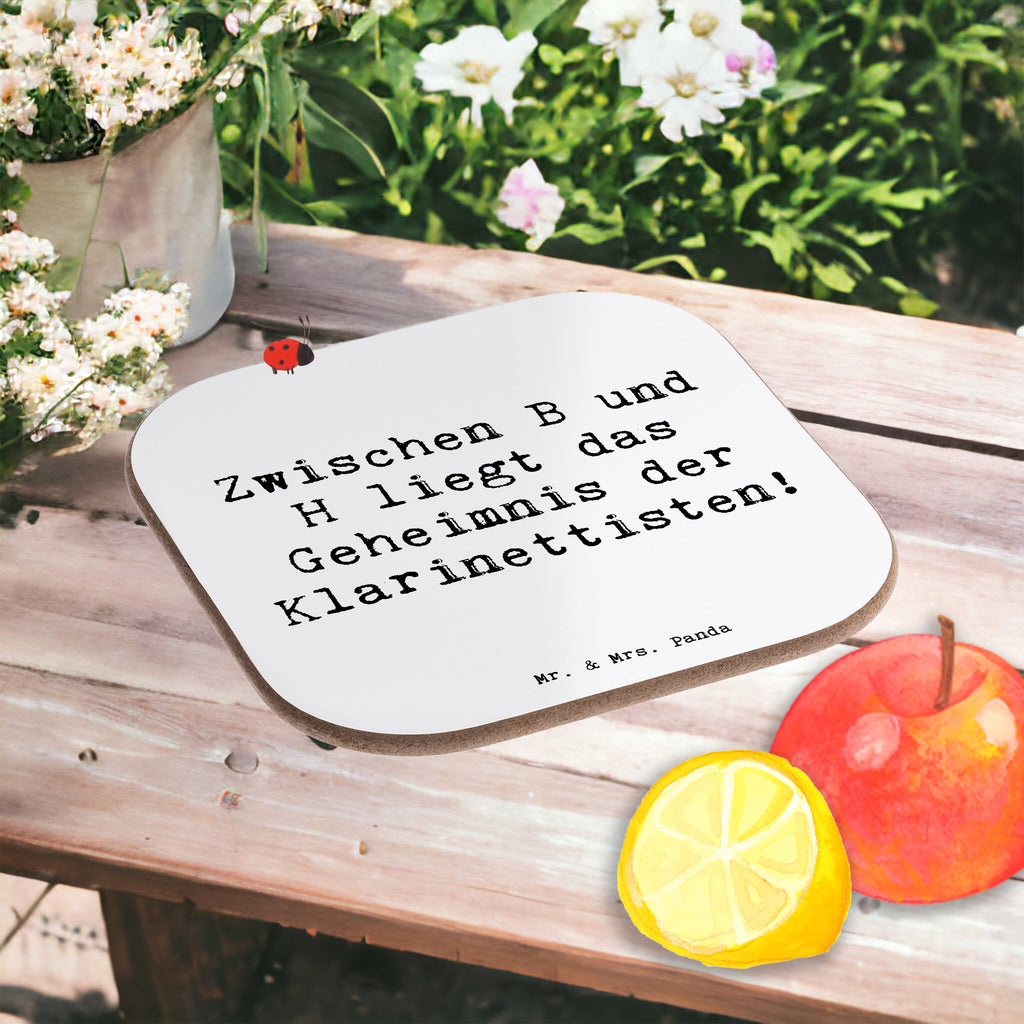 Zwischen B und
H liegt das
Geheimnis der
Klarinettisten!
Mr. & Mrs. Panda